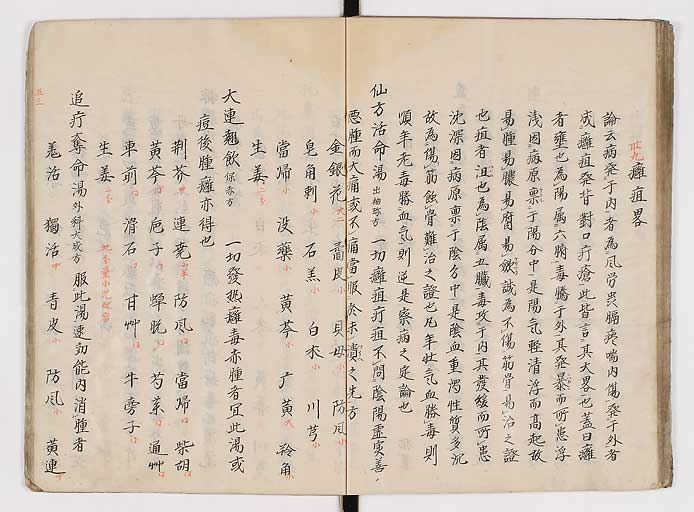 廿九 癰疽畧
論云病発于内者為風労畏膈疼喘内傷発于外者
成癰疽発背對口疔瘡此皆言其大畧也蓋曰癰
者壅也為陽属六腑毒騰于外其発暴而所患浮
浅因病原禀于陽分中是陽気軽清浮而高起故
易腫易膿易腐易斂誠為不傷筋骨易治之證
也疽者沮也為陰属五臓毒攻于内其發緩而所患
沈深因病原禀于陰分中是陰血重濁性質多沉
故為傷筋蝕骨難治之證也凡年壮気血勝毒則
順年老毒勝血気則逆是察病之定論也
仙方活命湯 一切癰疽疔疽不問陰陽虚実善
悪腫而大痛或不痛當服於未潰之先方
金銀花 大二 陳皮 貝母 小 防风 小
皂角刺 小 石羔 小 白朮 小 川芎 小
當帰 小 没藥 小 黄芩 小 大 羚角 小
生姜 二分
大連翹飲 保赤方 一切發熱癰毒赤腫者宜此湯或
痘後腫癰亦得也
荆芥 連壳 防风 當帰 柴胡
黄芩 梔子 蝉脱 芍薬 通艸
車前 滑石 甘艸 牛旁子
生姜 二分
追疔奪命湯 外科大成方 服此湯速効能内消腫者
羌活 獨活 中 青皮 小 防风 小 黄連 小
五三